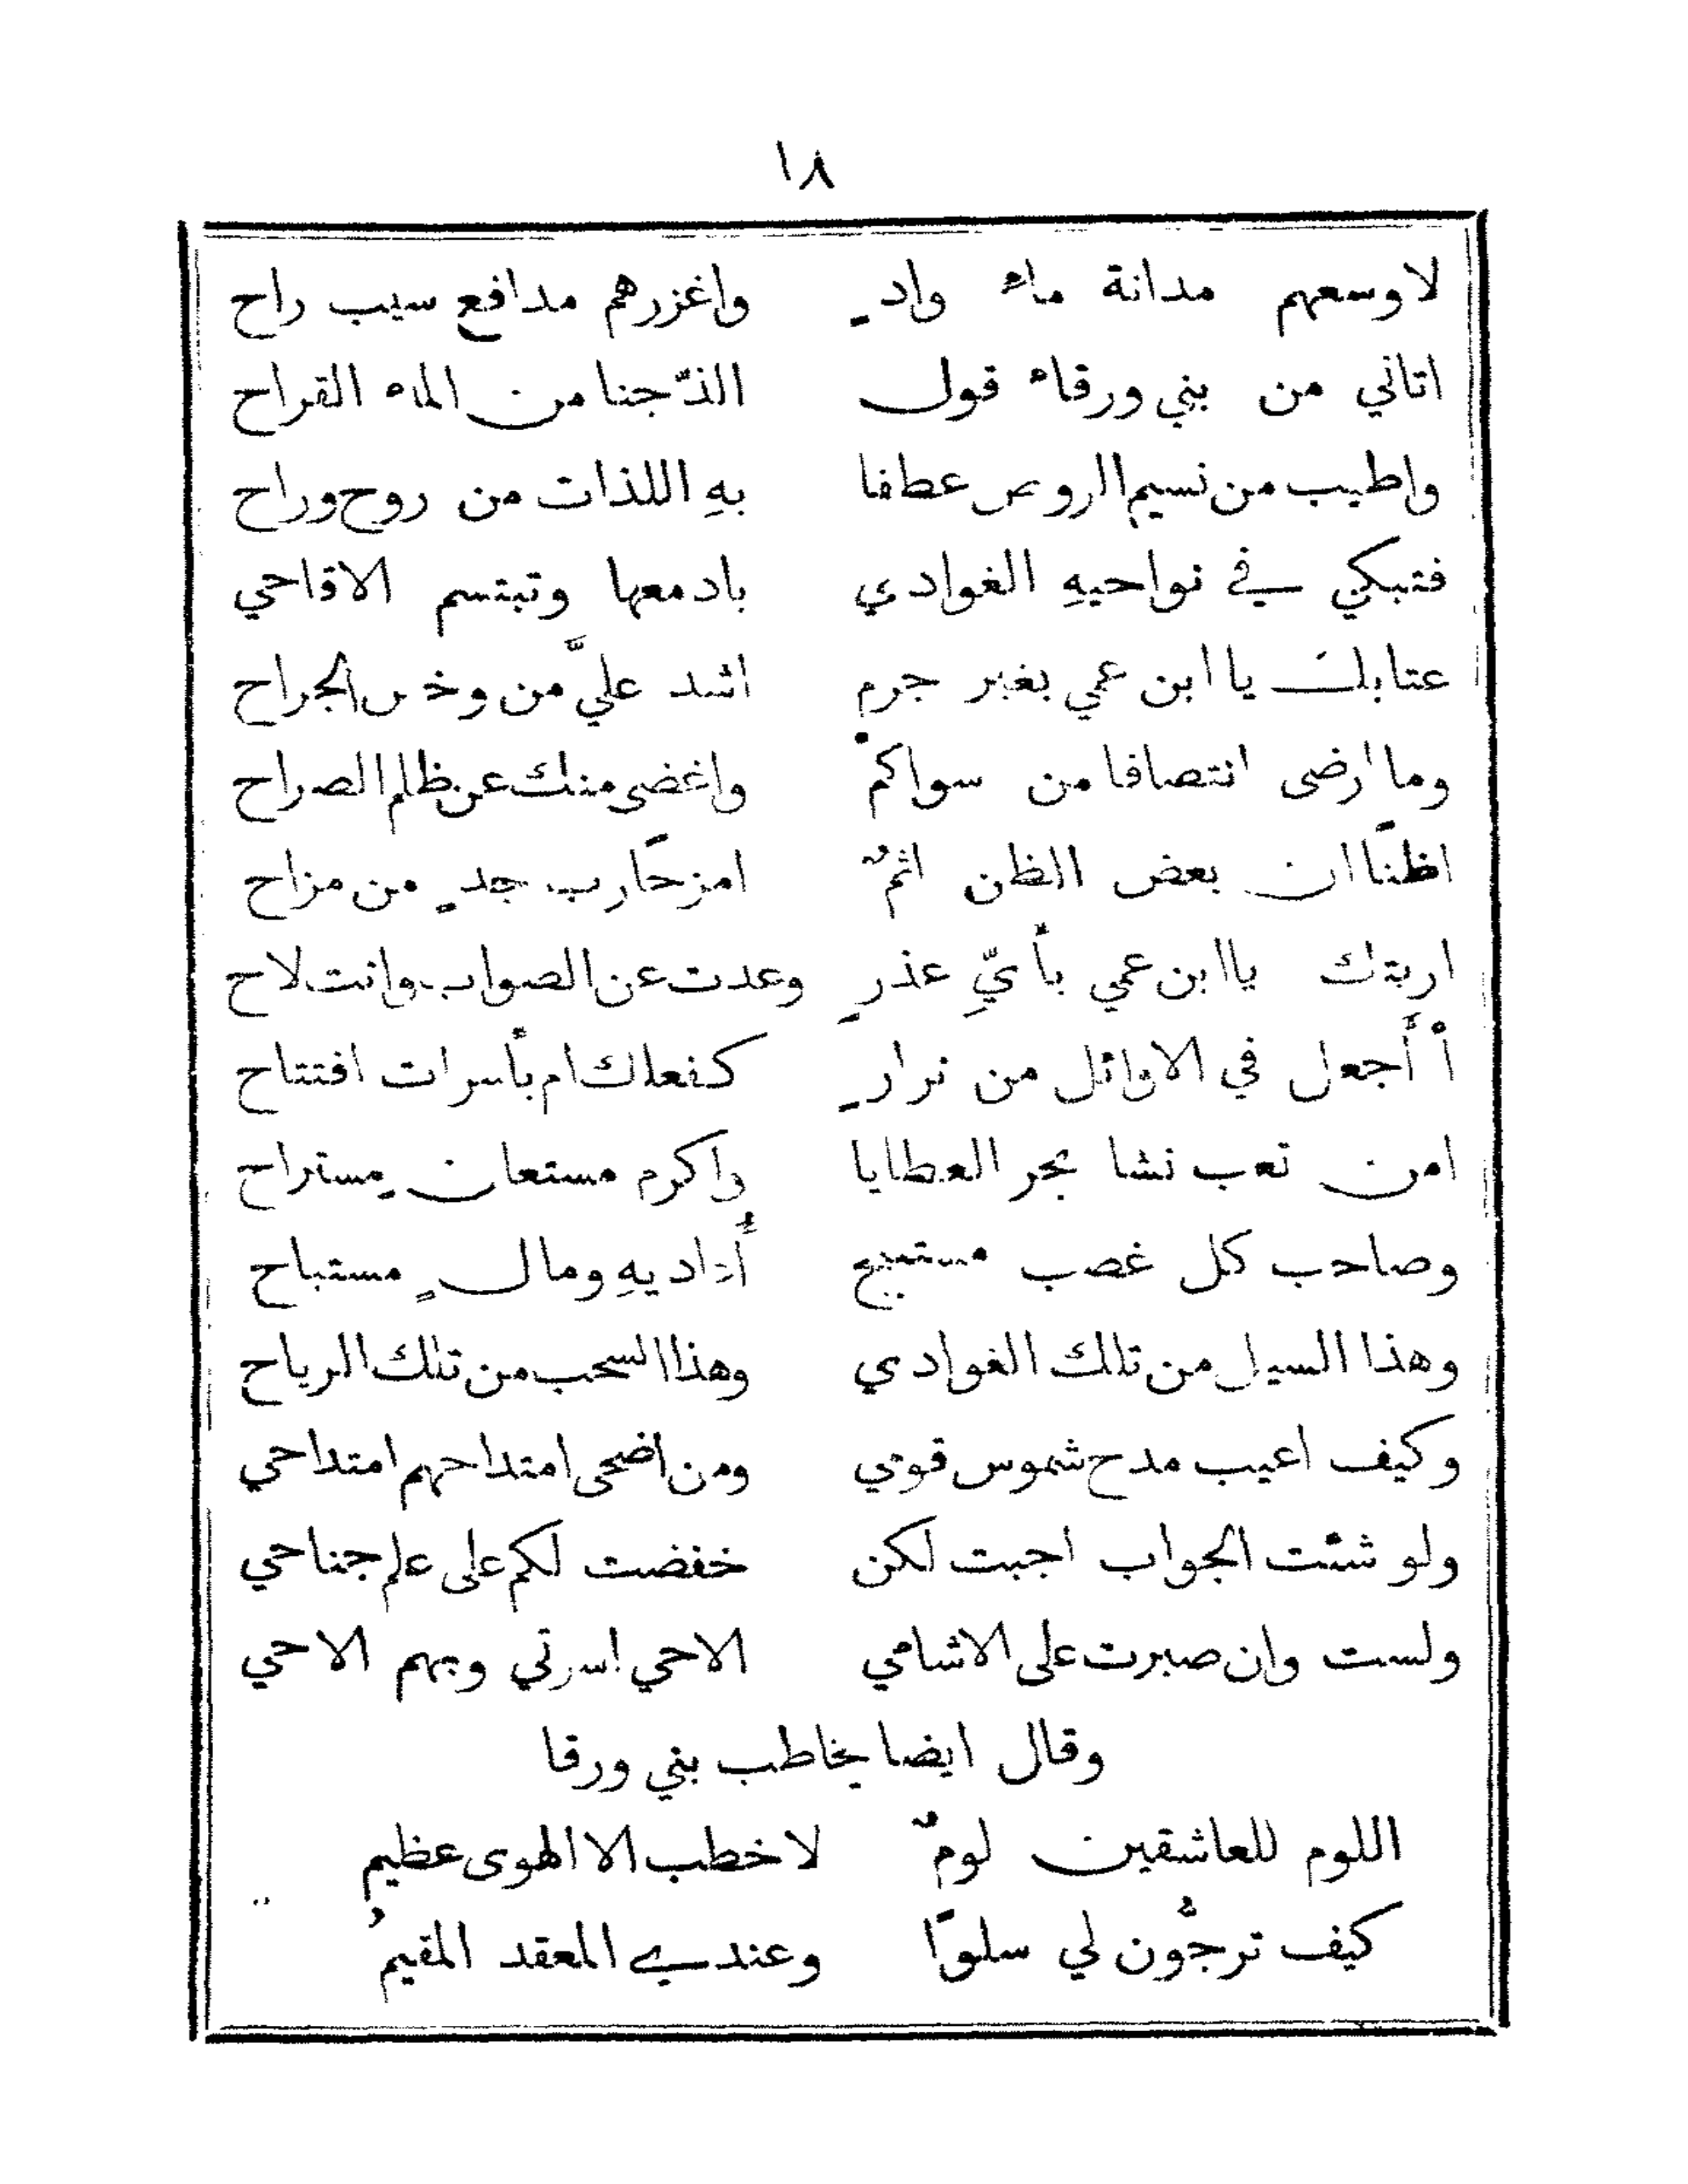 ١٨
لاوسعهم مدانة ماء وادٍ واغزرهم مدافع سيب راح
اتاني من بني ورقاء قول الذّ جنا من الماء القراح
واطيب من نسيم الروض عطافا بهِ اللذات من روح وراح
فتبكي في نواحيهِ الغوادي بادمعها وتبتسم الاقاحي
عتابك يا ابن عمي بغير جرم اشد عليَّ من وخس الجراح
وما ارضى انتصافا من سواكمْ واغضى منك عن ظلم الصراح
اظنًا ان بعض الظن اثمٌ امزحًا رب جدٍ من مزاح
اريتك يا ابن عمي بأيّ عذرٍ وعدت عن الصواب وانت لاح
أ أجعل في الاوائل من نزارٍ كفعلك ام بأسرات افتتاح
امن تعب نشا بحر العطايا واكرم مستعانٍ مستراح
وصاحب كل غصب مستبيح أداديهِ ومالٍ مستباح
وهذا السيل من تلك الغوادي وهذا السحب من تلك الرياح
وكيف اعيب مدح شموس قومي ومن اضحى امتداحهم امتداحي
ولو شئت الجواب اجبت لكن خفضت لكم على علم جناحي
ولست وان صبرت على الاشامي الاحي اسرتي وبهم الاحي
وقال ايضا يخاطب بني ورقا
اللوم للعاشقين لومٌ لا خطب الا الهوى عظيم
كيف ترجُّون لي سلوًا وعندي المعقد المقيمُ